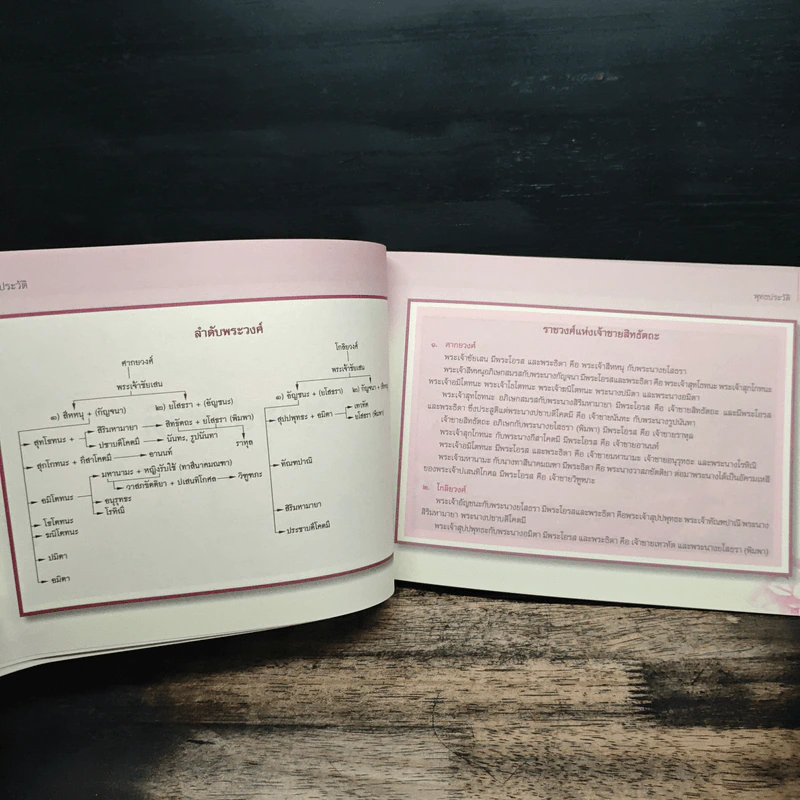 ประวัติ
ลำดับพระวงศ์
ศากยวงศ์
พระเจ้าชัยเสน
๑) สีหหนุ + (กัญจนา)
๒) ยโสธรา + (อัญชนะ)
สุทโธทนะ +
สิริมหามายา
สิทธัตถะ + ยโสธรา (พิมพา)
ปชาบดีโคตมี
นันทะ, รูปนันทา
ราหุล
สุกโกทนะ + กีสาโคตมี
อานนท์
อมิโตทนะ
มหานามะ + หญิงรับใช้ (ทาสินาคมณฑา)
วาสภขัตติยา + ปเสนทิโกศล
วิฑูฑภะ
อนุรุทธะ
โรหิณี
โธโตทนะ
ฆนิโตทนะ
ปมิตา
อมิตา
โกลิยวงศ์
พระเจ้าชัยเสน
๑) อัญชนะ + (ยโสธรา)
๒) กัญจนา +
สุปปพุทธะ + อมิตา
เทวทัต
ยโสธรา (พิมพา)
ทัณฑปาณิ
สิริมหามายา
ประชาบดีโคตมี
พุทธประวัติ
ราชวงศ์แห่งเจ้าชายสิทธัตถะ
๑. ศากยวงศ์
พระเจ้าชัยเสน มีพระโอรส และพระธิดา คือ พระเจ้าสีหหนุ กับพระนางยโสธรา
พระเจ้าสีหหนุอภิเษกสมรสกับพระนางกัญจนา มีพระโอรสและพระธิดา คือ พระเจ้าสุทโธทนะ พระเจ้าสุกโกทนะ
พระเจ้าอมิโตทนะ พระเจ้าโธโตทนะ พระเจ้าฆนิโตทนะ พระนางปมิตา และพระนางอมิตา
พระเจ้าสุทโธทนะ อภิเษกสมรสกับพระนางสิริมหามายา มีพระโอรส คือ เจ้าชายสิทธัตถะ และมีพระโอรส
และพระธิดา ซึ่งประสูติแต่พระนางปชาบดีโคตมี คือ เจ้าชายนันทะ กับพระนางรูปนันทา
เจ้าชายสิทธัตถะ อภิเษกกับพระนางยโสธรา (พิมพา) มีพระโอรส คือ เจ้าชายราหุล
พระเจ้าสุกโกทนะ กับพระนางกีสาโคตมี มีพระโอรส คือ เจ้าชายอานนท์
พระเจ้าอมิโตทนะ มีพระโอรสและพระธิดา คือ เจ้าชายมหานามะ เจ้าชายอนุรุทธะ และพระนางโรหิณี
พระเจ้ามหานามะ กับนางทาสินาคมณฑา มีพระธิดา คือ พระนางวาสภขัตติยา ต่อมาพระนางได้เป็นอัครมเหสี
ของพระเจ้าปเสนทิโกศล มีพระโอรส คือ เจ้าชายวิฑูฑภะ
๒. โกลิยวงศ์
พระเจ้าอัญชนะกับพระนางยโสธรา มีพระโอรสและพระธิดา คือพระเจ้าสุปปพุทธะ พระเจ้าทัณฑปาณิ พระนาง
สิริมหามายา พระนางปชาบดีโคตมี
พระเจ้าสุปปพุทธะกับพระนางอมิตา มีพระโอรส และพระธิดา คือ เจ้าชายเทวทัต และพระนางยโสธรา (พิมพา)